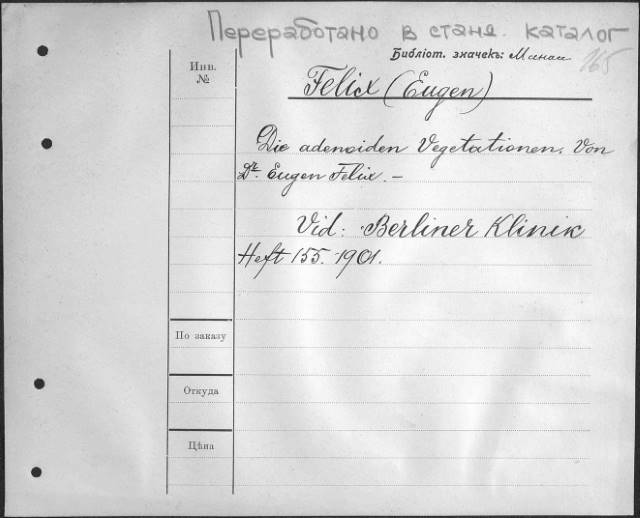 Переработано в станя. каталог
Библіот. значекъ:
165
Инв.
№
Felix (Eugen)
Die adenoiden Vegetationen. Von
Dr. Eugen Felix. —
Vid: Berliner Klinik
Heft 155. 1901.
По заказу
Откуда
Цѣна